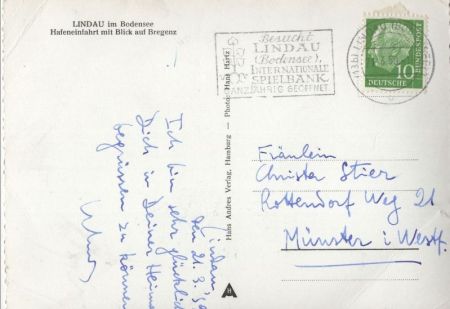 LINDAU im Bodensee
Hafeneinfahrt mit Blick auf Bregenz
Lindau,
den 21.3.
Ich bin sehr glücklich
Dich in Deiner Heimat
begrüssen zu können
Hans Andres Verlag, Hamburg — Photo: Hans Hartz
A
Besucht
LINDAU
(Bodensee),
INTERNATIONALE
SPIELBANK
GANZJÄHRIG GEÖFFNET
10
DEUTSCHE
BUNDESPOST
Fräulein
Christa Stier
Rottendorf Weg 21
Münster i. Westf.